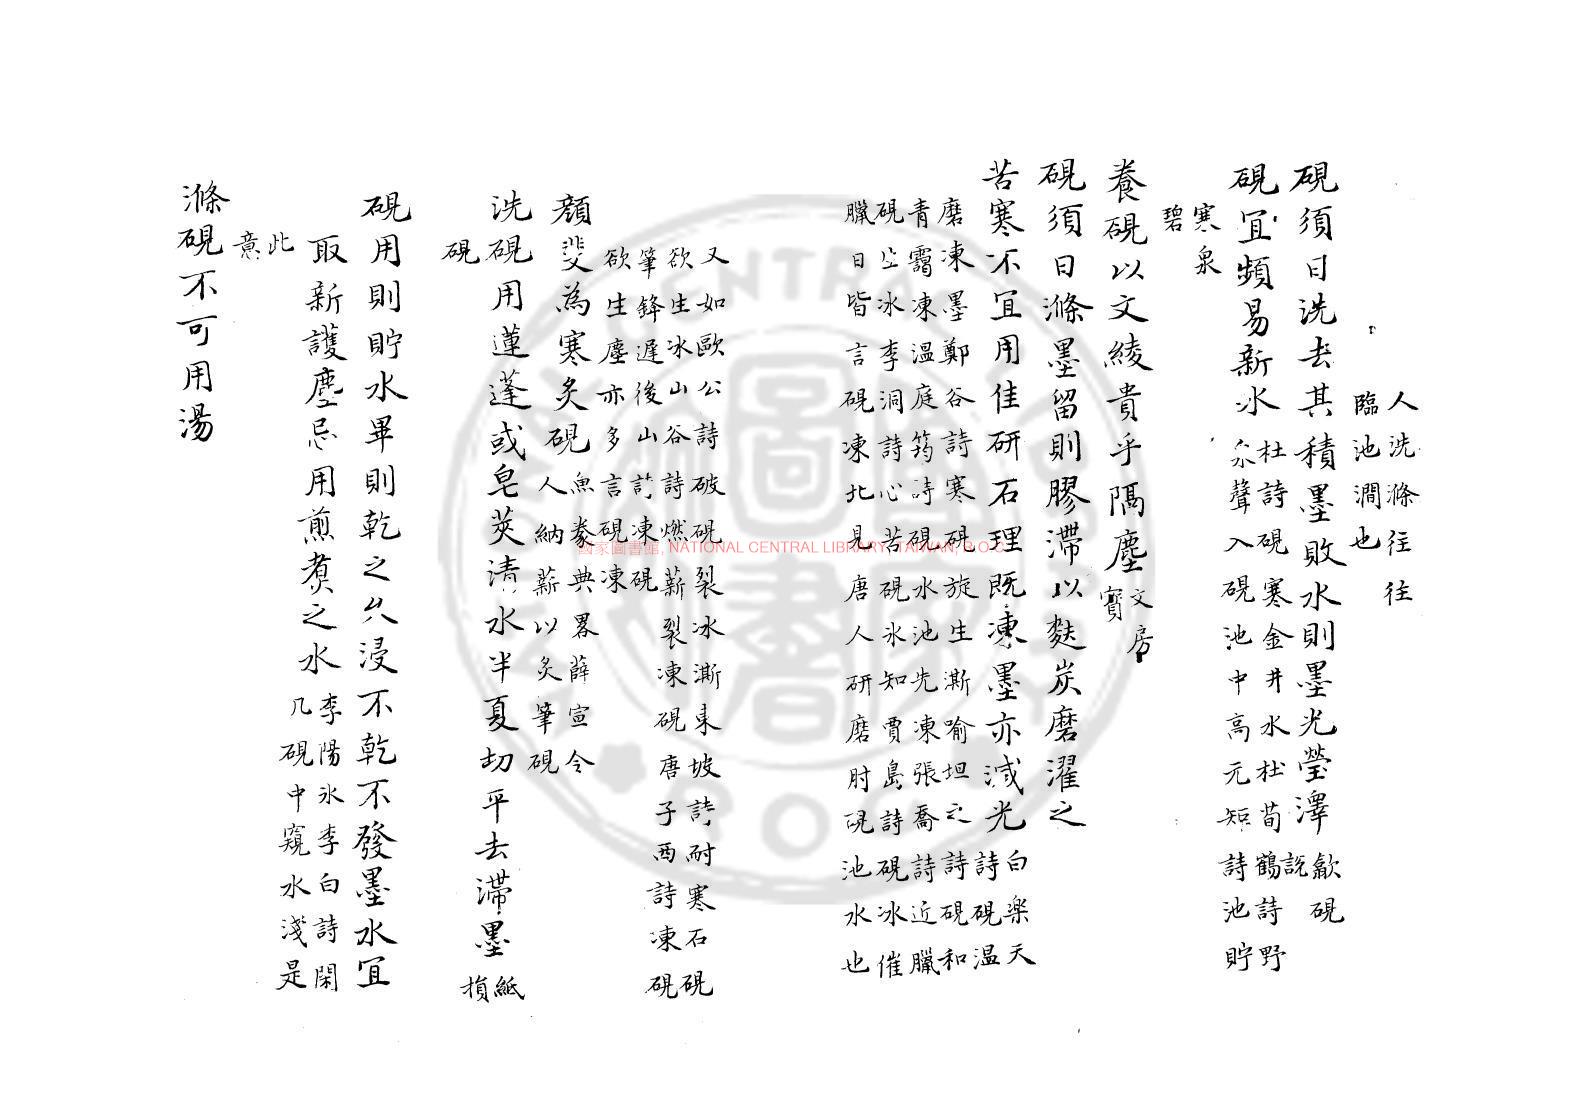 人洗滌往往
臨池澗也
硯須日洗去其積墨敗水則墨光瑩澤 歙硯
說
硯宜頻易新水 杜詩硯寒金井水杜荀鶴詩野
泉聲入硯池中高元矩詩池貯
寒泉
碧
養硯以文綾貴乎隔塵 文房
寶
硯須日滌墨留則膠滯以麩炭磨濯之
苦寒不宜用佳研石理既凍墨亦減光 白樂天
詩硯温
磨凍墨鄭谷詩寒硯旋生澌喻坦之詩硯和
青靄凍温庭筠詩硯水池先凍張喬詩近臘
硯生冰李洞詩心苦硯氷知賈島詩硯冰催
臘日皆言硯凍北見唐人研磨時硯池水也
又如歐公詩破硯裂冰澌東坡詩耐寒石硯
欲生冰山谷詩燃薪裂凍硯唐子西詩凍硯
筆鋒遲後山詩凍硯
欲生塵亦多言硯凍
顔斐為寒炙硯 魚豢典畧薛宣令
人納薪以炙筆硯
洗硯用蓮蓬或皂莢清水半夏切平去滯墨 紙
損
硯
硯用則貯水畢則乾之久浸不乾不發墨水宜
取新護塵忌用煎煑之水 李陽冰李白詩閑
几硯中窺水淺是
此
意
滌硯不可用湯
國家圖書館, NATIONAL CENTRAL LIBRARY, TAIWAN, R.O.C